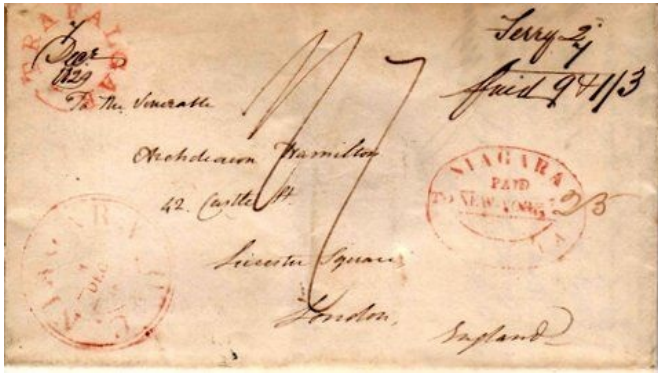 TRAFALGAR
7
Decr
1829
Ferry 2
7
paid 9 & 1/3
To the Venerable
Archdeacon Hamilton
42. Castle St.
Leicester Square
London,
England
NIAGARA
PAID
TO NEW-YORK
U.C.
25
NIAGARA
DEC